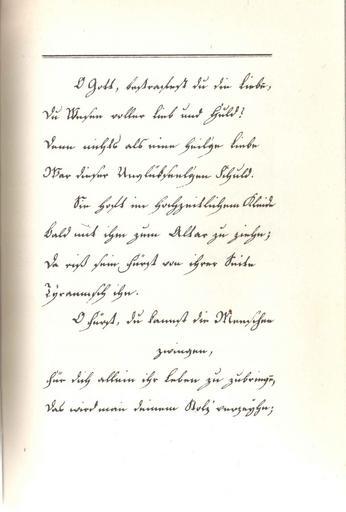 O Gott, bestrafest du die Liebe,
Du Wesen voller Lieb und Huld?
Denn nichts als eine heilge Liebe
War dieser Unglückseelgen Schuld.
Sie hoft im hochzeitlichem Kleide
Bald mit ihm zum Altar zu ziehn;
Da riß sein Fürst von ihrer Seite
Tyrannisch ihn.
O Fürst, du kannst die Menschen
zwingen,
Für dich allein ihr Leben zu zubringen,
Das wird man deinem Stolz verzeyhn;